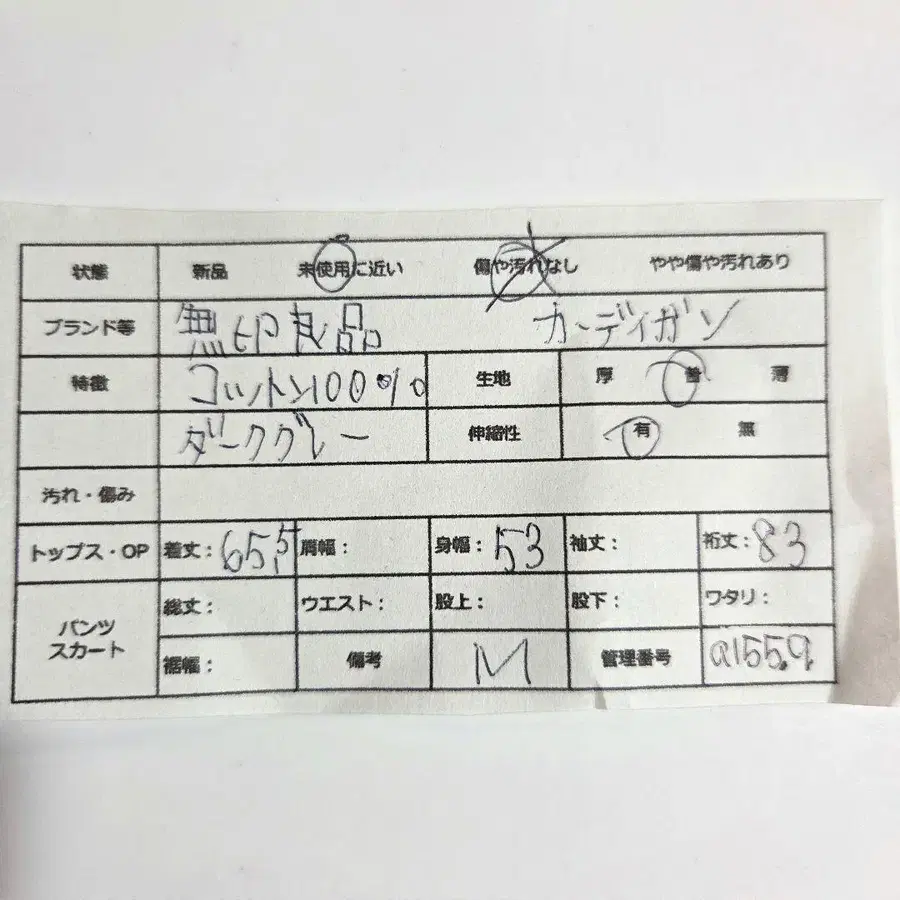 状態 新品 未使用に近い 傷や汚れなし やや傷や汚れあり
ブランド等 無印良品 カーディガン
特徴 コットン100% 生地 厚 普 薄
ダークグレー 伸縮性 有 無
汚れ・傷み
トップス・OP 着丈: 65.5 肩幅: 身幅: 53 袖丈: 裄丈: 83
パンツ スカート 総丈: ウエスト: 股上: 股下: ワタリ:
裾幅: 備考 M 管理番号 a1559